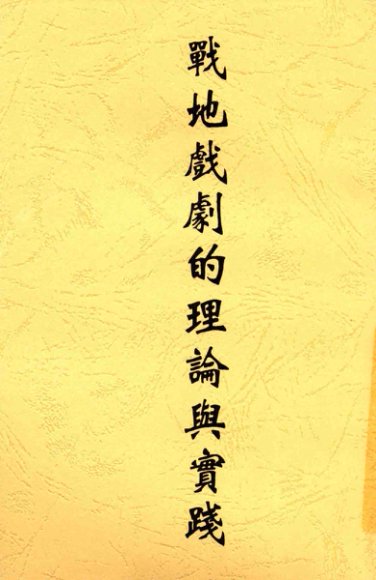 戰地戲劇的理論與實踐